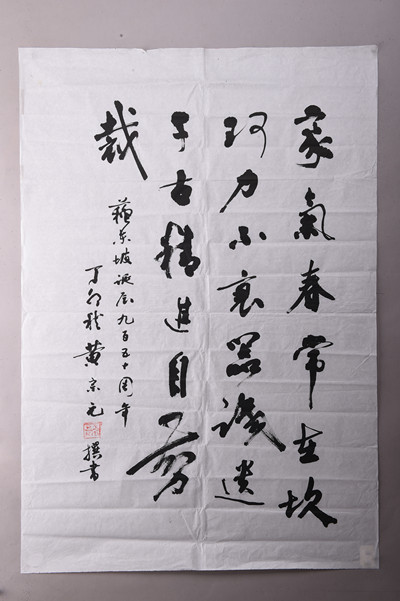 豪氣春常在坎
坷力不衰器識遺
千古精進自剪
裁
蘇东坡誕辰九百五十周年
丁卯秋黄宗元撰書